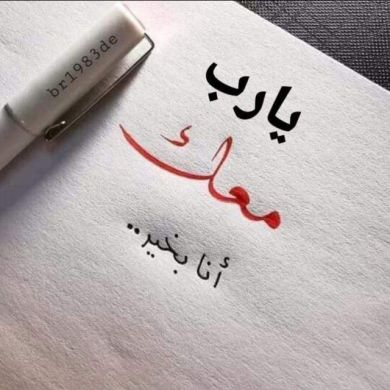 br1983de
يارب
معك
أنا بخير..